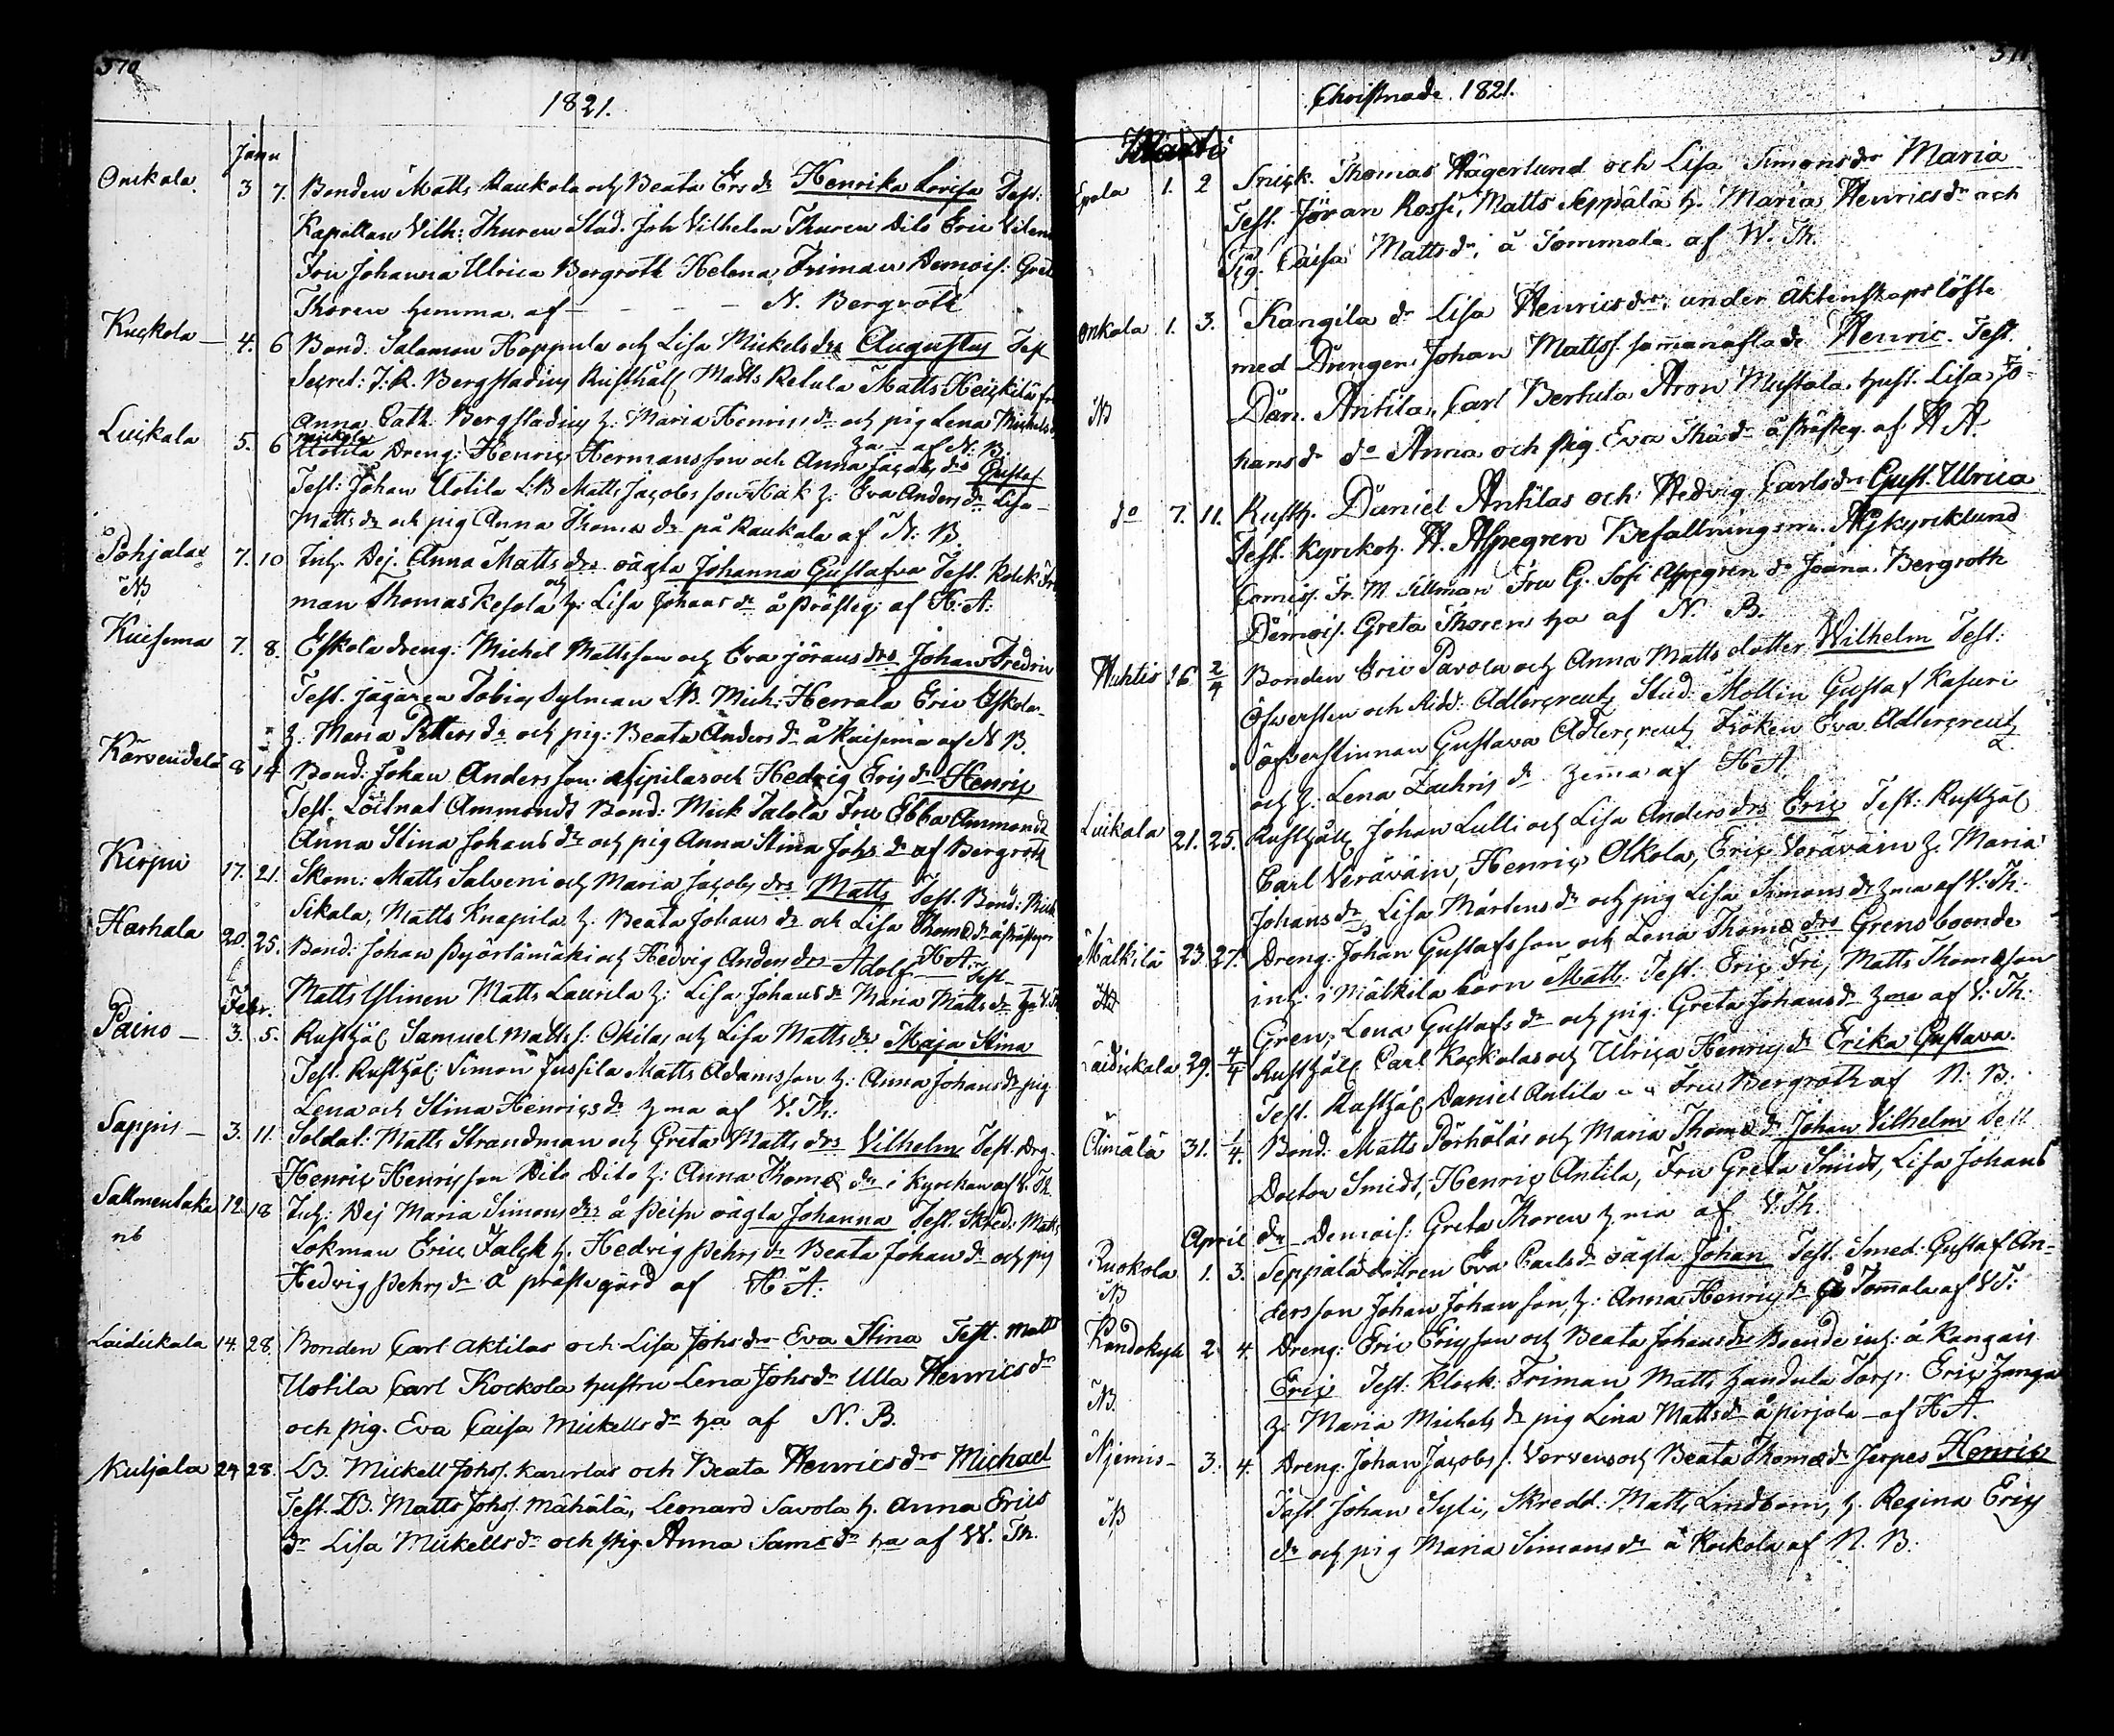 370
1821.
Janu
Onkala 3 7. Bonden Matts Raukola och Beata Ers dr Henrika Lovisa Test:
Kapellan Vilh: Thuren Stud. Joh Vilhelm Thuren Dito Eric
Fru Johanna Ulrica Bergroth Helena Friman Demois: Greta
Thoren hemma af - - - - N. Bergroth
Kuckola 4. 6 Bond: Salomon Hoppula och Lisa Mickels drs Augustus Test
Secret: J: R. Bergstadius Rusthåll Matts Retula Matts Heickilä fru
Anna Cath. Bergstadius h: Maria Henrics dr och pig Lena Michels dr
ha af N. B.
Luikala 5. 6 Uotila Dreng: Henric Hermansson och Anna Jacobs drs Gustaf
Test: Johan Uotila LB Matts Jacobs son Hak h: Eva Anders dr Lisa
Matts dr och pig Anna Thomæ dr på Raukala af N: B.
Pohjala 7. 10 Inh. Dej. Anna Matts drs oägta Johanna Gustafva Test. Klock Fri-
NB man Thomas Kesola och h: Lisa Johans dr å Prästeg: af H: A:
Kuisema 7. 8. Eskola dreng: Michel Mattsson och Eva Jörans drs Johan Fredric
Test. jägaren Tobias Sylman LB. Mich: Herrala Eric Eskola
h. Maria Petters dr och pig: Beata Anders dr å Kuisema af N B.
Kärvendelä 8 14 Bond: Johan Andersson Äijpilas och Hedvig Erics dr Henric
Test: Löitnat Ammondt Bond: Mick Talola Fru Ebba Ammondt
Anna Stina Johans dr och pig Anna Stina Johs dr af Bergroth
Kerpu 17. 21. Skom: Matts Salveni och Maria Jacobs drs Matts Test. Bond: Mick
Sikala, Matts Knapila h. Beata Johans dr och Lisa Thomæ dr å Prästegen
H A.
Harhala 20. 25. Bond: Johan Pyörlämäki och Hedvig Anders drs Adolf Test
Matts Ylinen Matts Laurila h: Lisa Johans dr Maria Matts dr ha V. Th
Febr.
Paino 3. 5. Rusthål Samuel Matts s: Okilas och Lisa Matts drs Maja Stina
Test. Rusthål: Simon Jussila Matts Adamsson h: Anna Johans dr pig
Lena och Stina Henrics dr hma af V. Th:
Sappis 3. 11. Soldat: Matts Strandman och Greta Matts drs Vilhelm Test. Drg.
Henric Henricsson Dito Dito h: Anna Thomæ dr i Kyrckan af V. Th.
Sallmentaka 12. 18 Inh: Dej Maria Simons drs å oägta Johanna Test. Skred: Matts
nb Lokman Eric Falck h. Hedvig Pehrs dr Beata Johans dr och pig
Hedvig Pehrs dr å prästegård af H A:
Laidickala 14. 28. Bonden Carl Aktilas och Lisa Johs drs Eva Stina Test. Matts
Uotila Carl Kockola hustru Lena Johs dr Ulla Henrics dr
och pig. Eva Caisa Mickells dr ha af N. B.
Kuljala 24 28. LB. Mickell Johs. Kaurlas och Beata Henrics drs Michael
Test. LB. Matts Johs. Mähälä, Leonard Savola h. Anna Erics
dr Lisa Mickells dr och pig Anna Sams dr ha af W. Th.
371
Christnade. 1821.
Marti
Epala 1. 2 Snick. Thomas Hägerlund och Lisa Simons dr Maria
Test. Jöran Rossi, Matts Seppälä h. Maria Henrics dr och
Pig. Caisa Matts dr, å Tommola af W. Th.
Onkala 1. 3. Kangila dr Lisa Henrics dr, under äktenskaps löfte
med Drengen Johan Mattss. sammanaflade Henric. Test.
NB Dan. Antila, Carl Bertula Aron Mustola hust. Lisa Jo-
hans dr do Anna och pig. Eva Tho dr å Prästeg. af H A.
do 7. 11. Rusth. Daniel Antilas och Hedvig Carls drs Gust. Ulrica
Test. Kyrkoh. H. Alpegren Befallningsm. Kyrcklund
Comiss. Fr. M. Sillman Fru G. Sofi Alpegren do Joana Bergroth
Demois. Greta Thoren ha af N B.
Huhtis 16 2/4 Bonden Eric Pavola och Anna Matts dotter Wilhelm Test:
Öfversten och Ridd: Adlercreutz Stud: Mollin Gustaf Kasuri
öfverstinnan Gustava Adlercreutz Fröken Eva Adlercreutz
och h. Lena Zachris dr hemma af H A.
Luikala 21. 25. Rusthåll Johan Lulli och Lisa Anders drs Eric Test: Rusthål
Carl Veräväin, Henric Olkola, Eric Veräväin h. Maria
Johans dr, Lisa Mårtens dr och pig Lisa Simons dr hma af V: Th:
Mälkilä 23. 27. Dreng: Johan Gustafsson och Lena Thomæ drs Grens boende
inh: i Mälkilä barn Matts. Test: Eric Fri, Matts Thomæson
Gren, Lena Gustafs dr och pig: Greta Johans dr hma af V: Th:
Laidickala 29. 4/4 Rusthåll Carl Kockolas och Ulrica Henrics dr Erika Gustava.
Test. Rusthål Daniel Antila Fru Bergroth af N: B.
Äimälä 31. 1/4. Bond: Matts Pörhöläs och Maria Thomæ dr Johan Vilhelm Test
Doctor Smidt, Henric Antila, Fru Greta Smidt, Lisa Johans
dr Demois: Greta Thoren h ma af V: Th.
April
Ruokola 1. 3. Seppälä dottren Eva Carls dr oägta Johan Test. Smed: Gustaf An-
NB dersson Johan Johansson, h: Anna Henrics dr på Tommola af V T:
Kandokylä 2 4. Dreng: Eric Ericsson och Beata Johans dr Boende inh: å Kangais
NB. Eric Test: Klock. Friman Matts Handula Torp: Eric Hanga
h. Maria Michels dr pig Lina Matts dr å Pirjola af H A.
Njemis 3. 4. Dreng: Johan Jacobs s. Vervens och Beata Thomæ dr Jerpes Henric
NB Test Johan Syti, Skredd: Matts Lindbom, h. Regina Erics
dr och pig Maria Simons dr å Kockola af N. B.